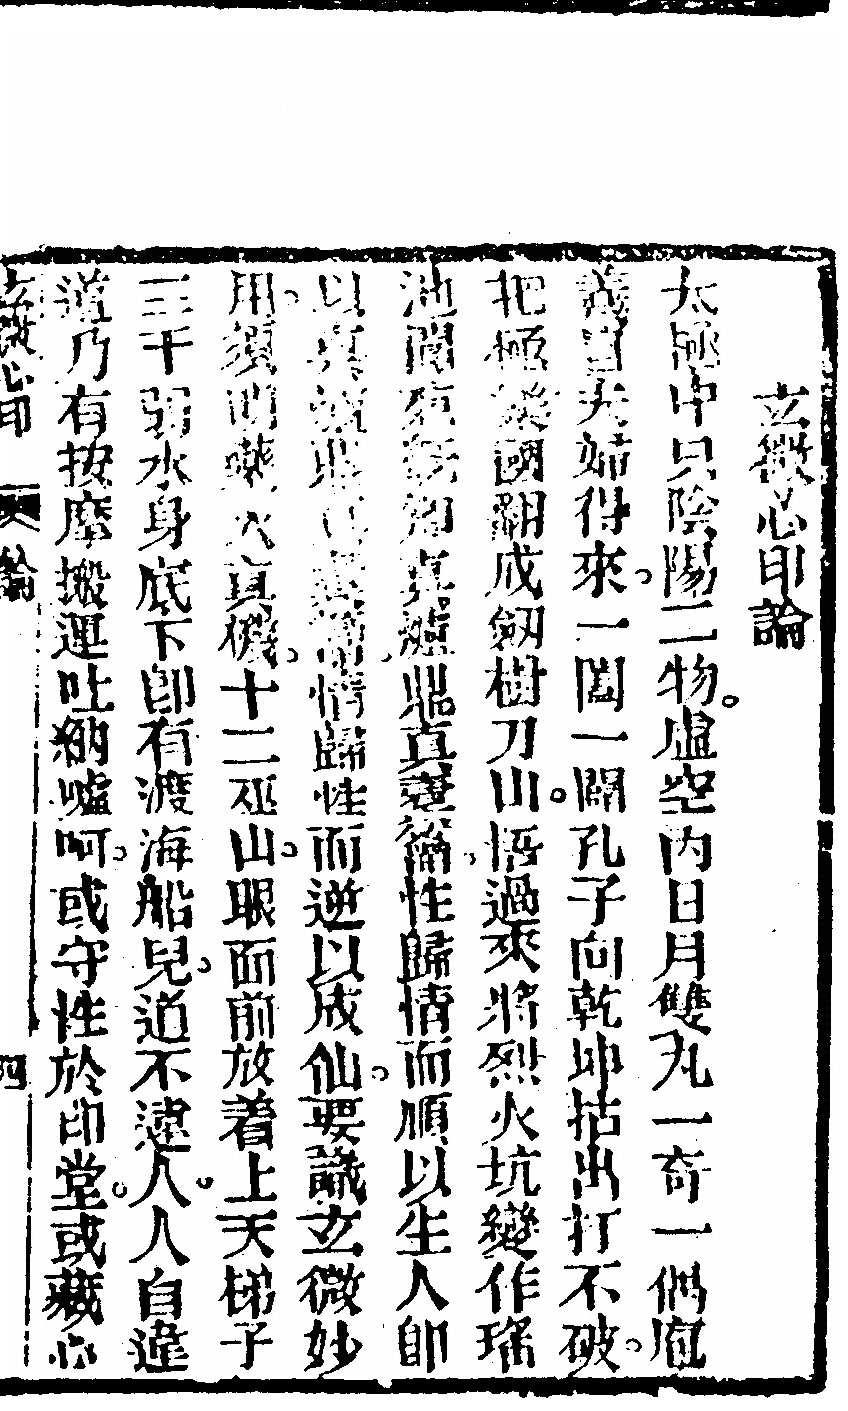 玄微心印論
太極中只陰陽二物。虛空內日月雙丸一奇一偶庖
羲自夫婦得來。一闔一闢孔子向乾坤拈出打不破
把極樂國翻成劒樹刀山。悟過來將烈火坑變作瑤
池閬苑 知真爐鼎真橐籥。性歸情而順以生人即
以真爐鼎 真橐籥。情歸性而逆以成仙。要識玄微妙
用。須明藥火真機。十二巫山。眼面前放着上天梯子
三千弱水身底下卽有渡海船兒。道不遠人。人自違
道乃有按摩搬運吐納噓呵。或守性於印堂。或藏心
玄微心印 論 四